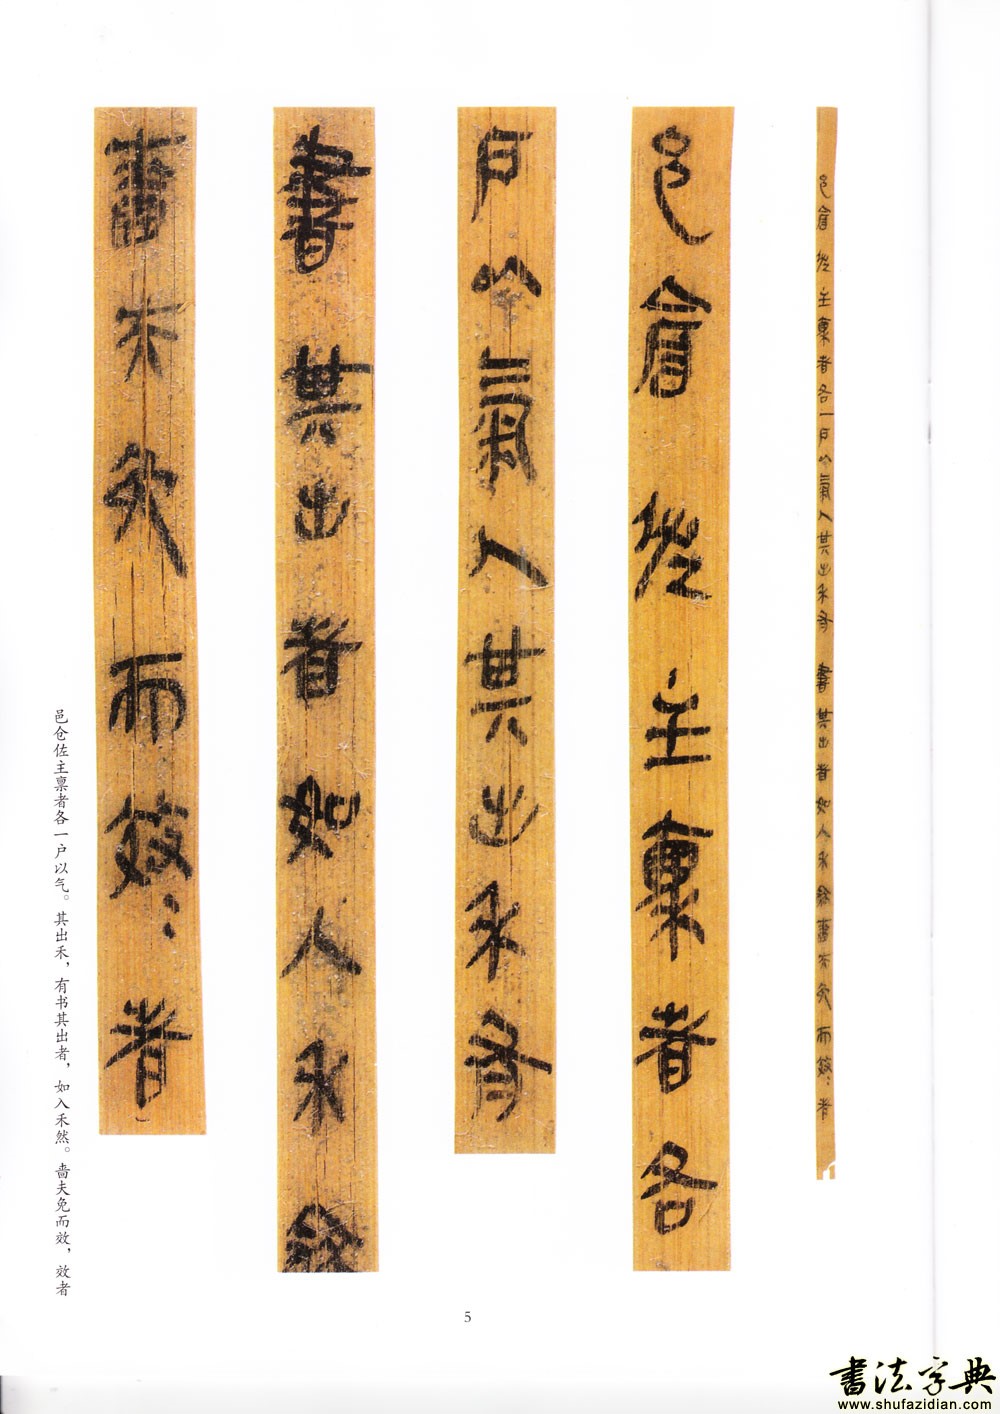 邑倉佐主稟者各一戶以氣人其出禾有書其出者如入禾然嗇夫免而效=者
邑倉佐主稟者各
戶以氣人其出禾有
書其出者如入禾然
嗇夫免而效=者
邑仓佐主禀者各一户以气。其出禾，有书其出者，如入禾然。啬夫免而效，效者
5
書法字典
www.shufazidian.com